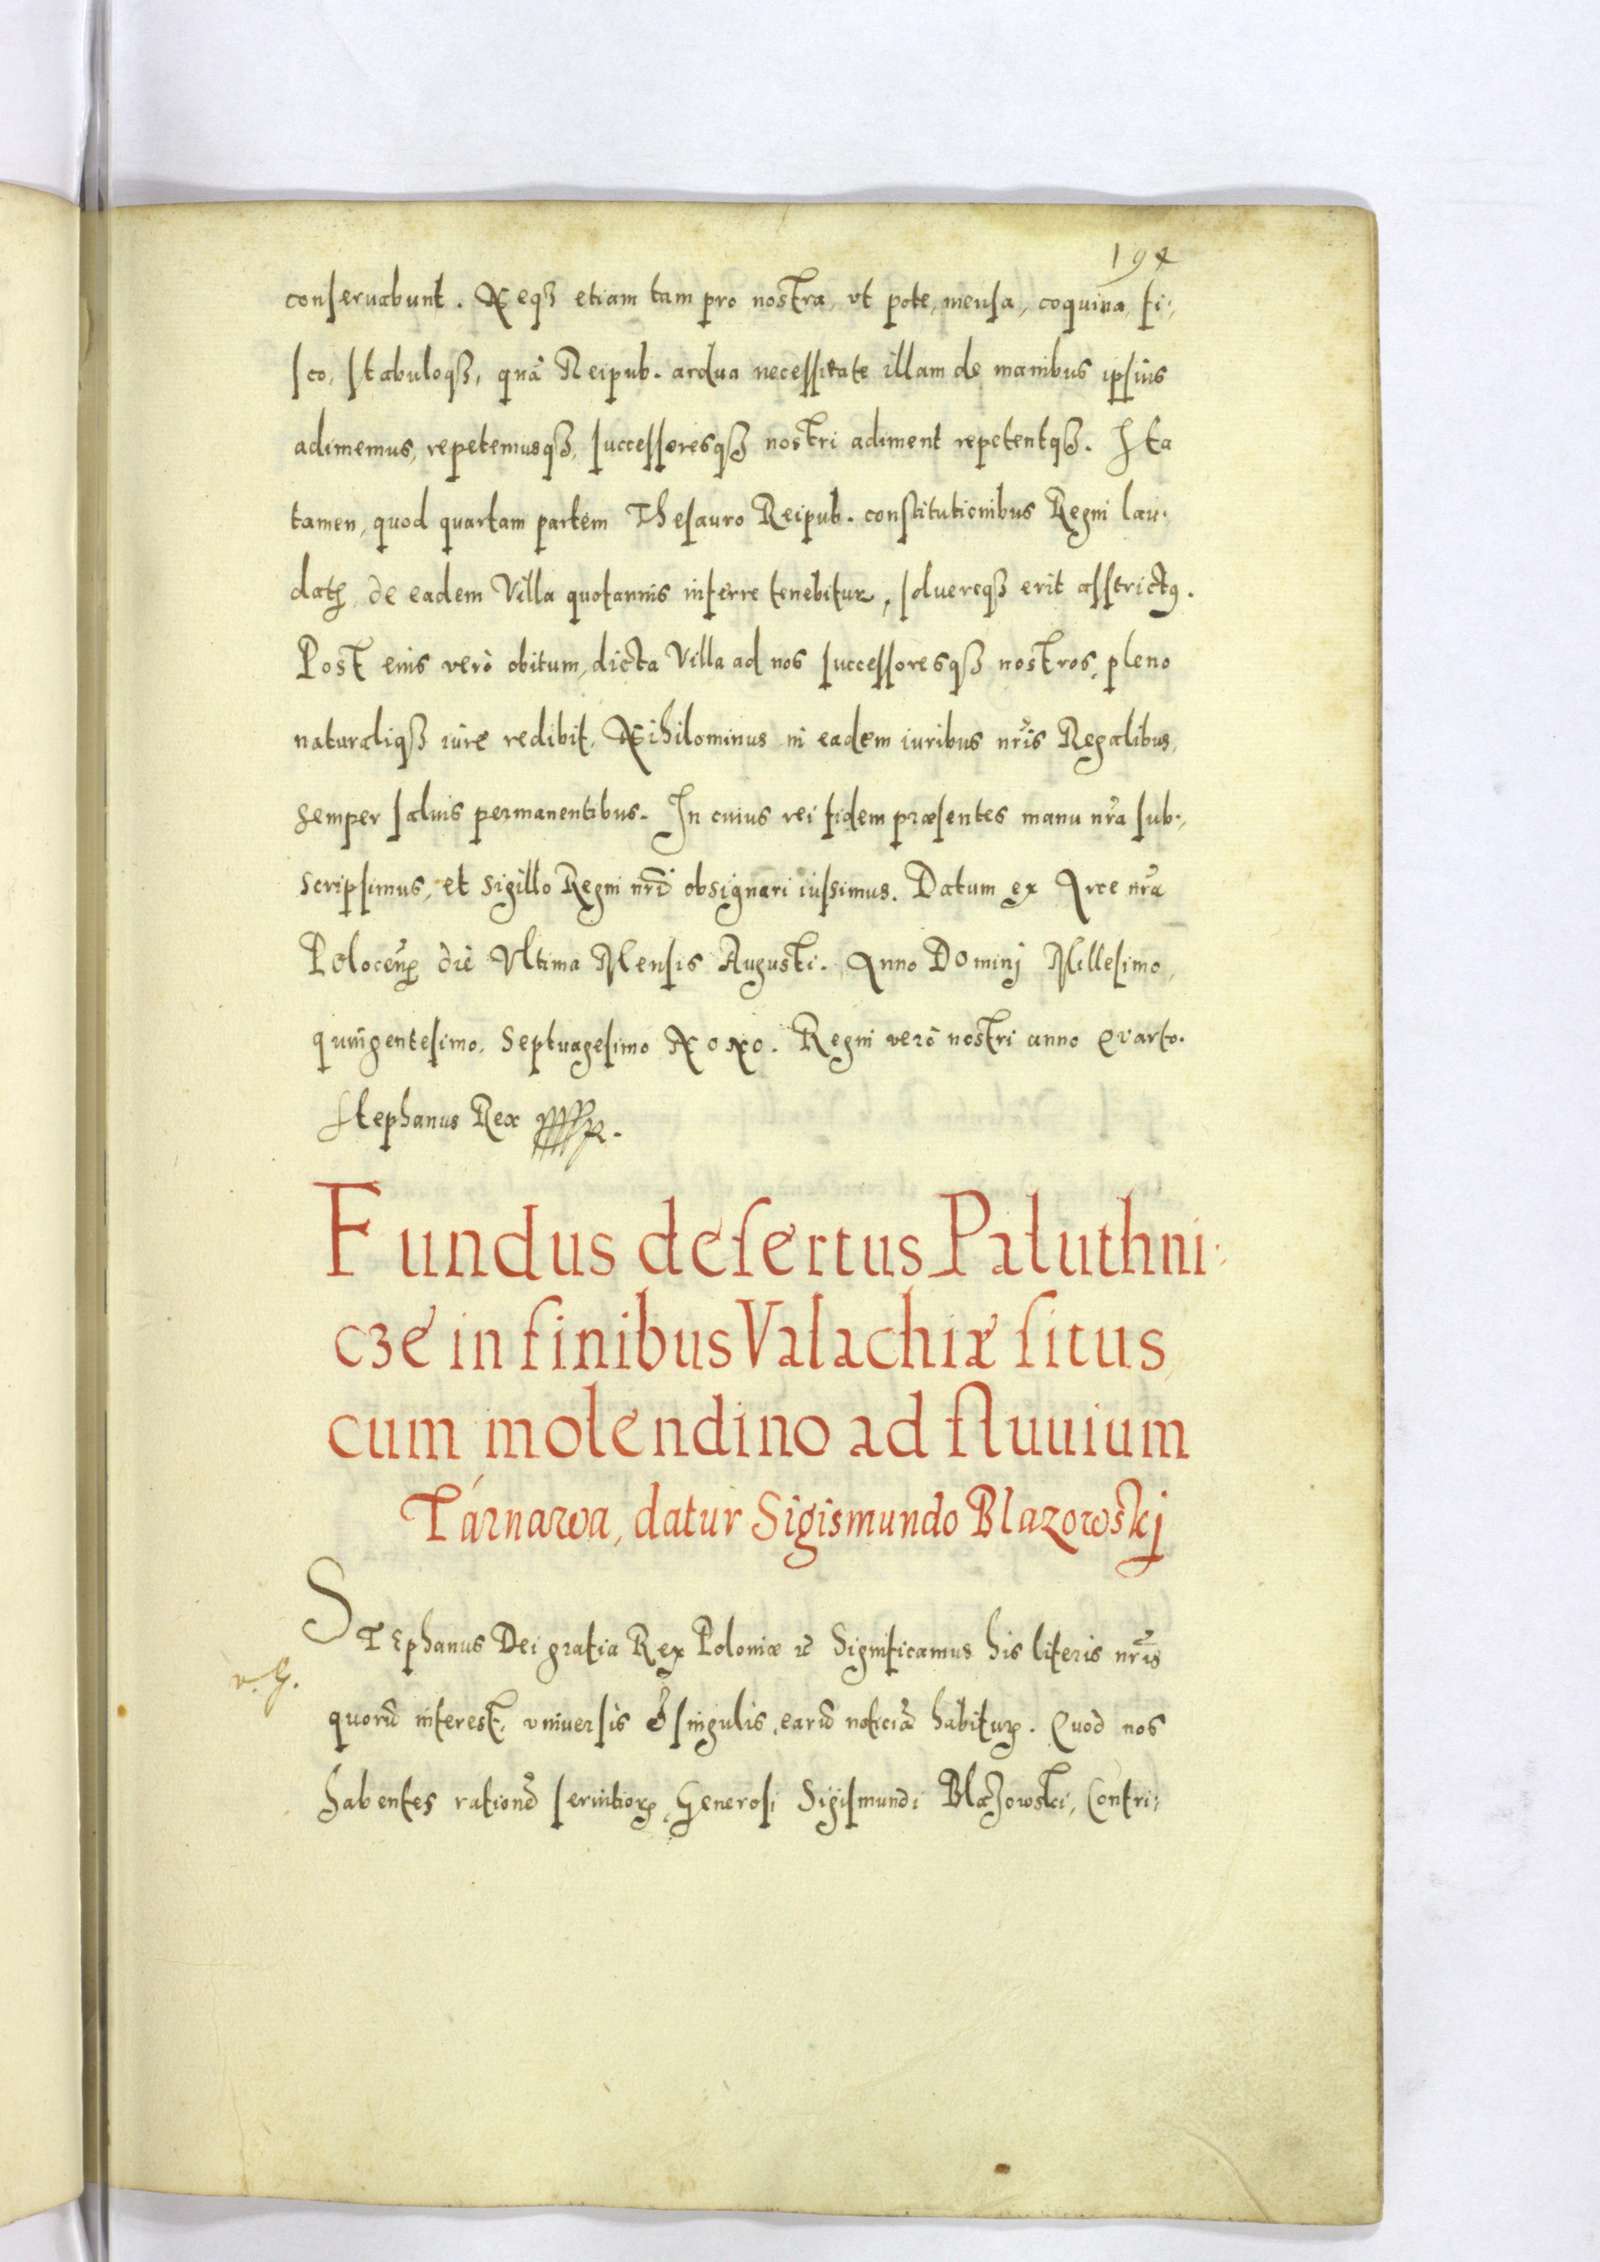 194
conseruabunt. Neqꝫ etiam tam pro nostra, vt pote, mensa, coquina, fi:,
sco, stabuloqꝫ, quā Reipub. ardua necessitate illam de manibus ipsius
adimemus, repetemusqꝫ, successoresqꝫ nostri adiment repetentqꝫ. Ita
tamen, quod quartam partem Thesauro Reipub. constitutionibus Regni lau:
datꝭ, de eadem Villa quotannis inferre tenebitur, soluereqꝫ erit asstrictꝰ.
Post eius verò obitum, dicta Villa ad nos successoresqꝫ nostros, pleno
naturaliqꝫ iure redibit, Nihilominus in eadem iuribus nr̃is Regalibus,
semper saluis permanentibus. In cuius rei fidem præsentes manu nr̃a sub:,
scripsimus, et sigillo Regni nr̃i obsignari iussimus. Datum ex Arce nr̃a
Polocen̄ die Vltima Mensis Augusti. Anno Dominj Millesimo,
quingentesimo, Septuagesimo Nono. Regni verò nostri anno Quarto.
Stephanus Rex
Fundus desertus Paluthni:
cze in finibus Valachiæ situs,
cum molendino ad fluuium
Tárnawa, datur Sigismundo Blazowskj
STEphanus Dei gratia Rex Poloniæ ꝛc̄ Significamus his literis nr̃is
v. g.
quorū interest, vniuersis & singulis, earū noticiā habiturꝭ. Quod nos
habentes rationē seruitiorꝭ, Generosi Sigismundi Blażowski, Contri:,